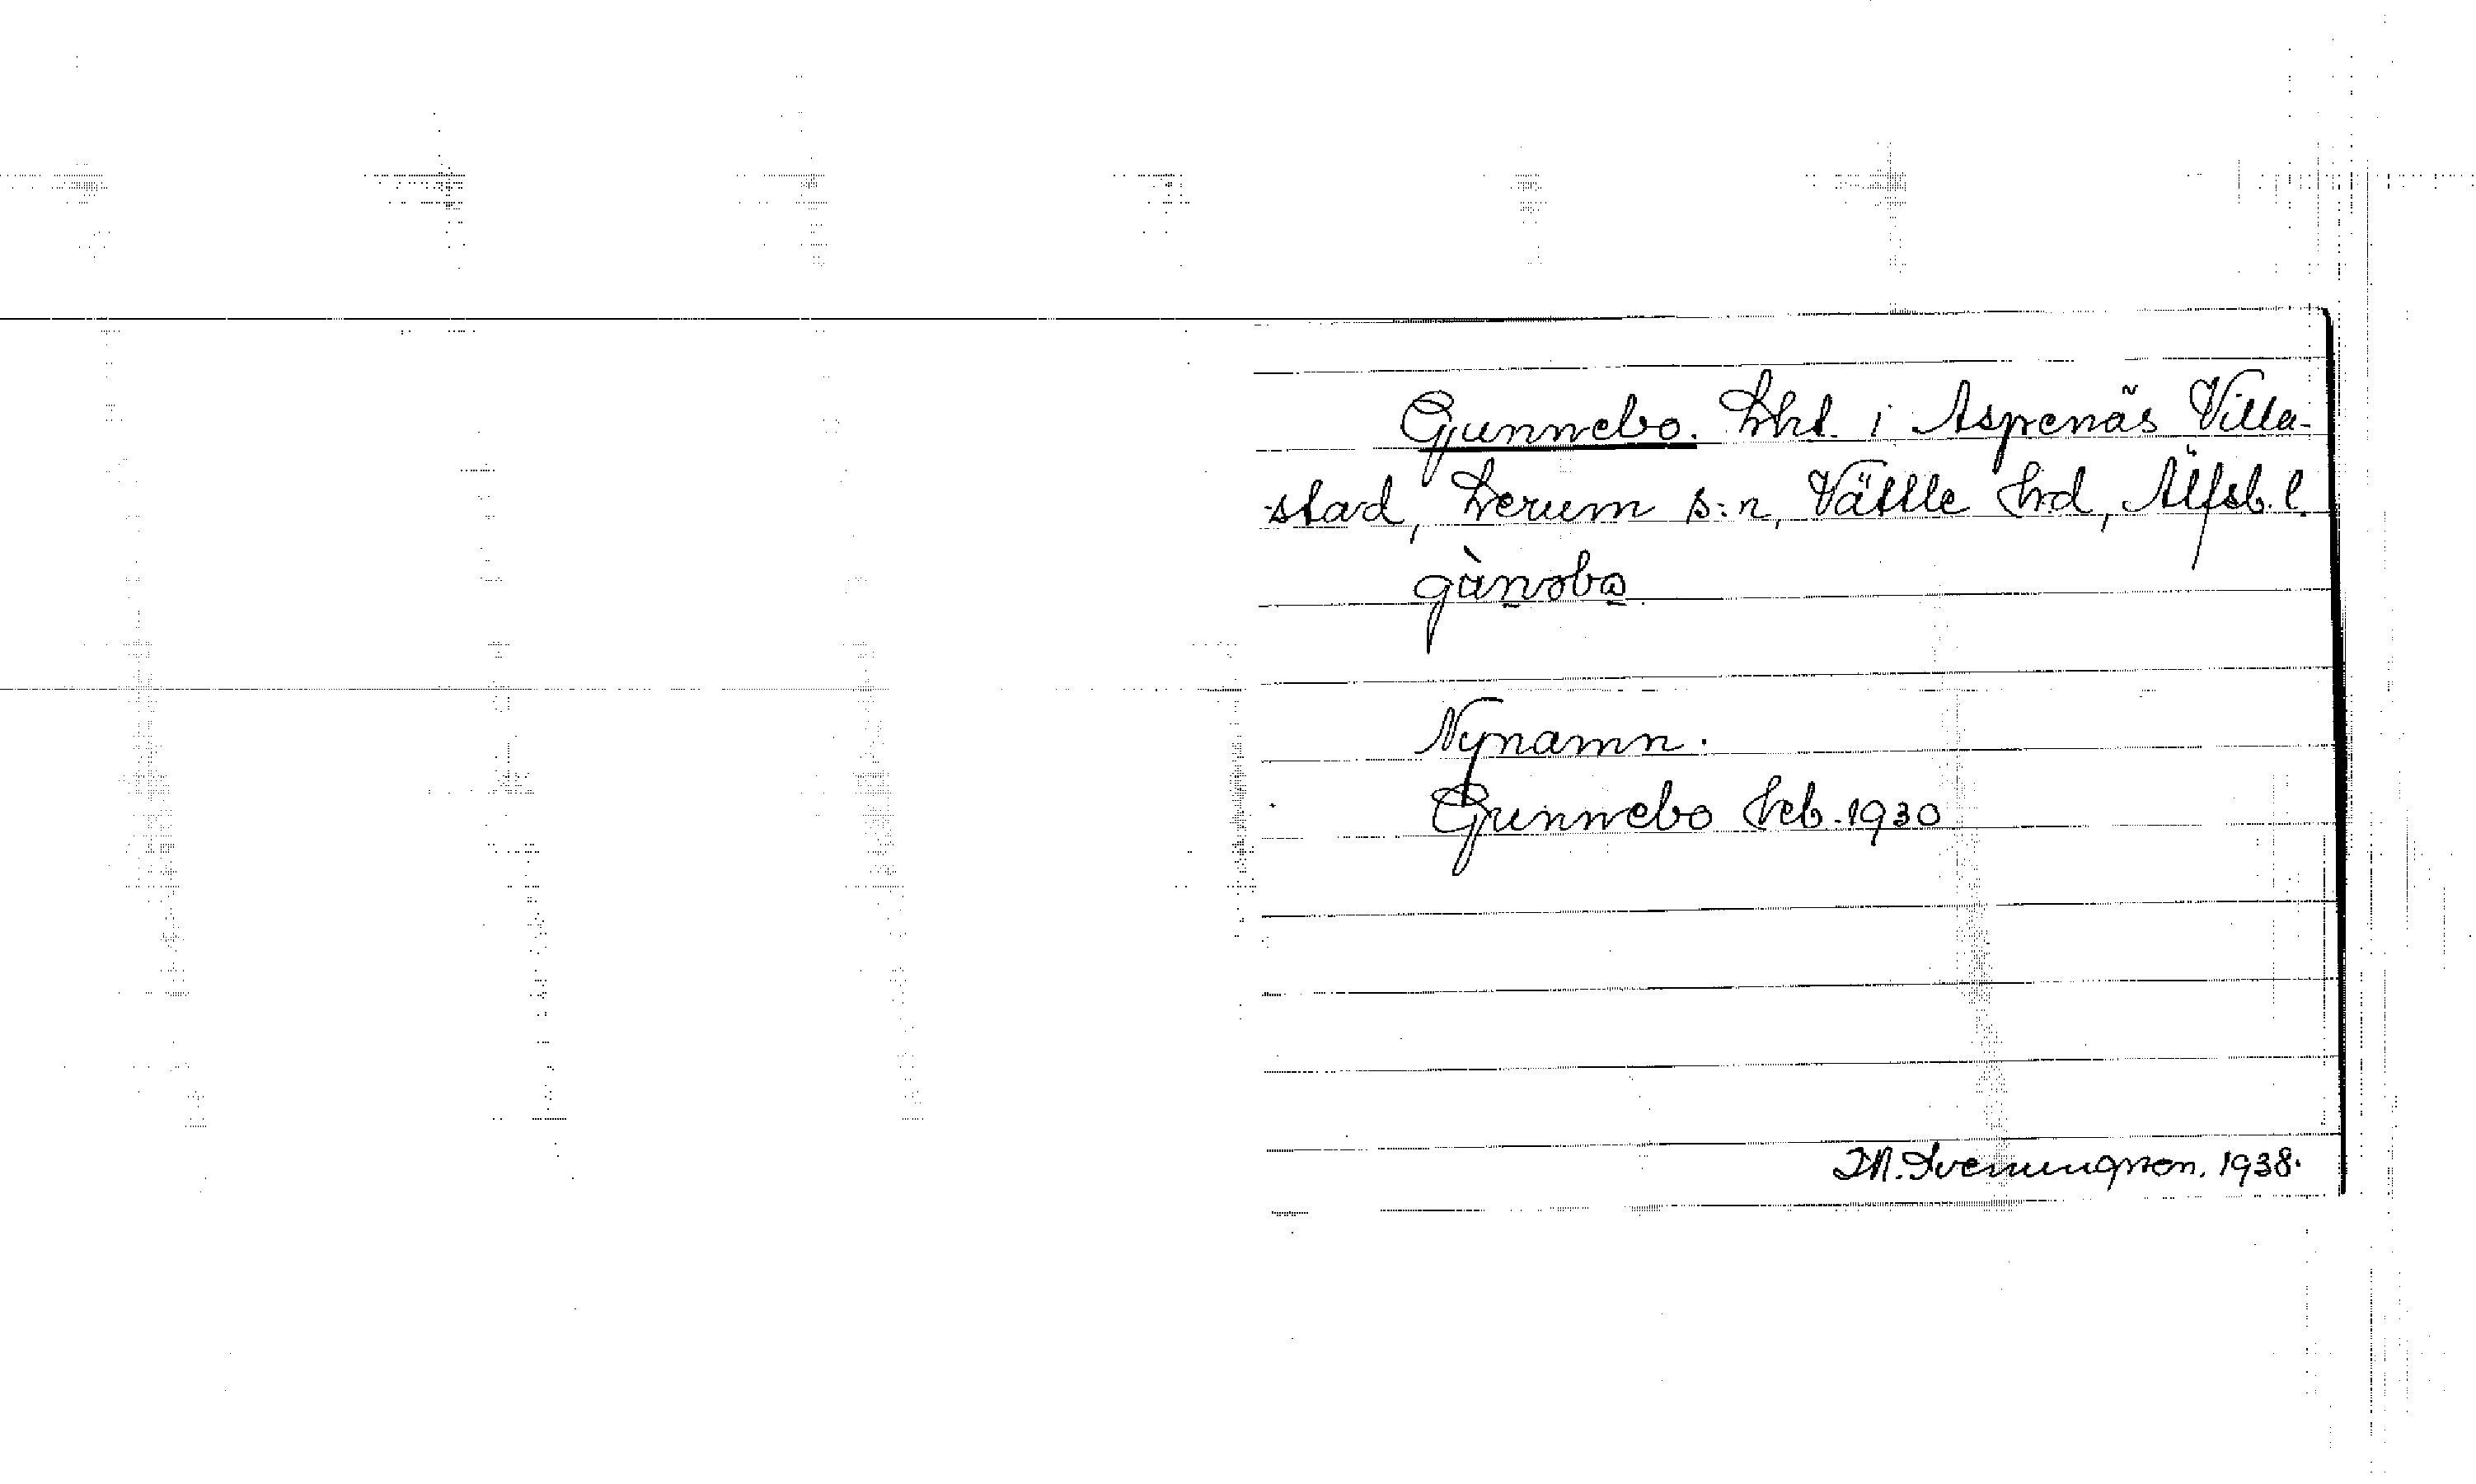 Gunnebo. Lht. i Aspenäs Villa-
stad, Lerum s:n, Vättle hd, Älfsb. l.
gànəbo
Nynamn.
Gunnebo Jreb. 1930
M. Svenungsson. 1938.